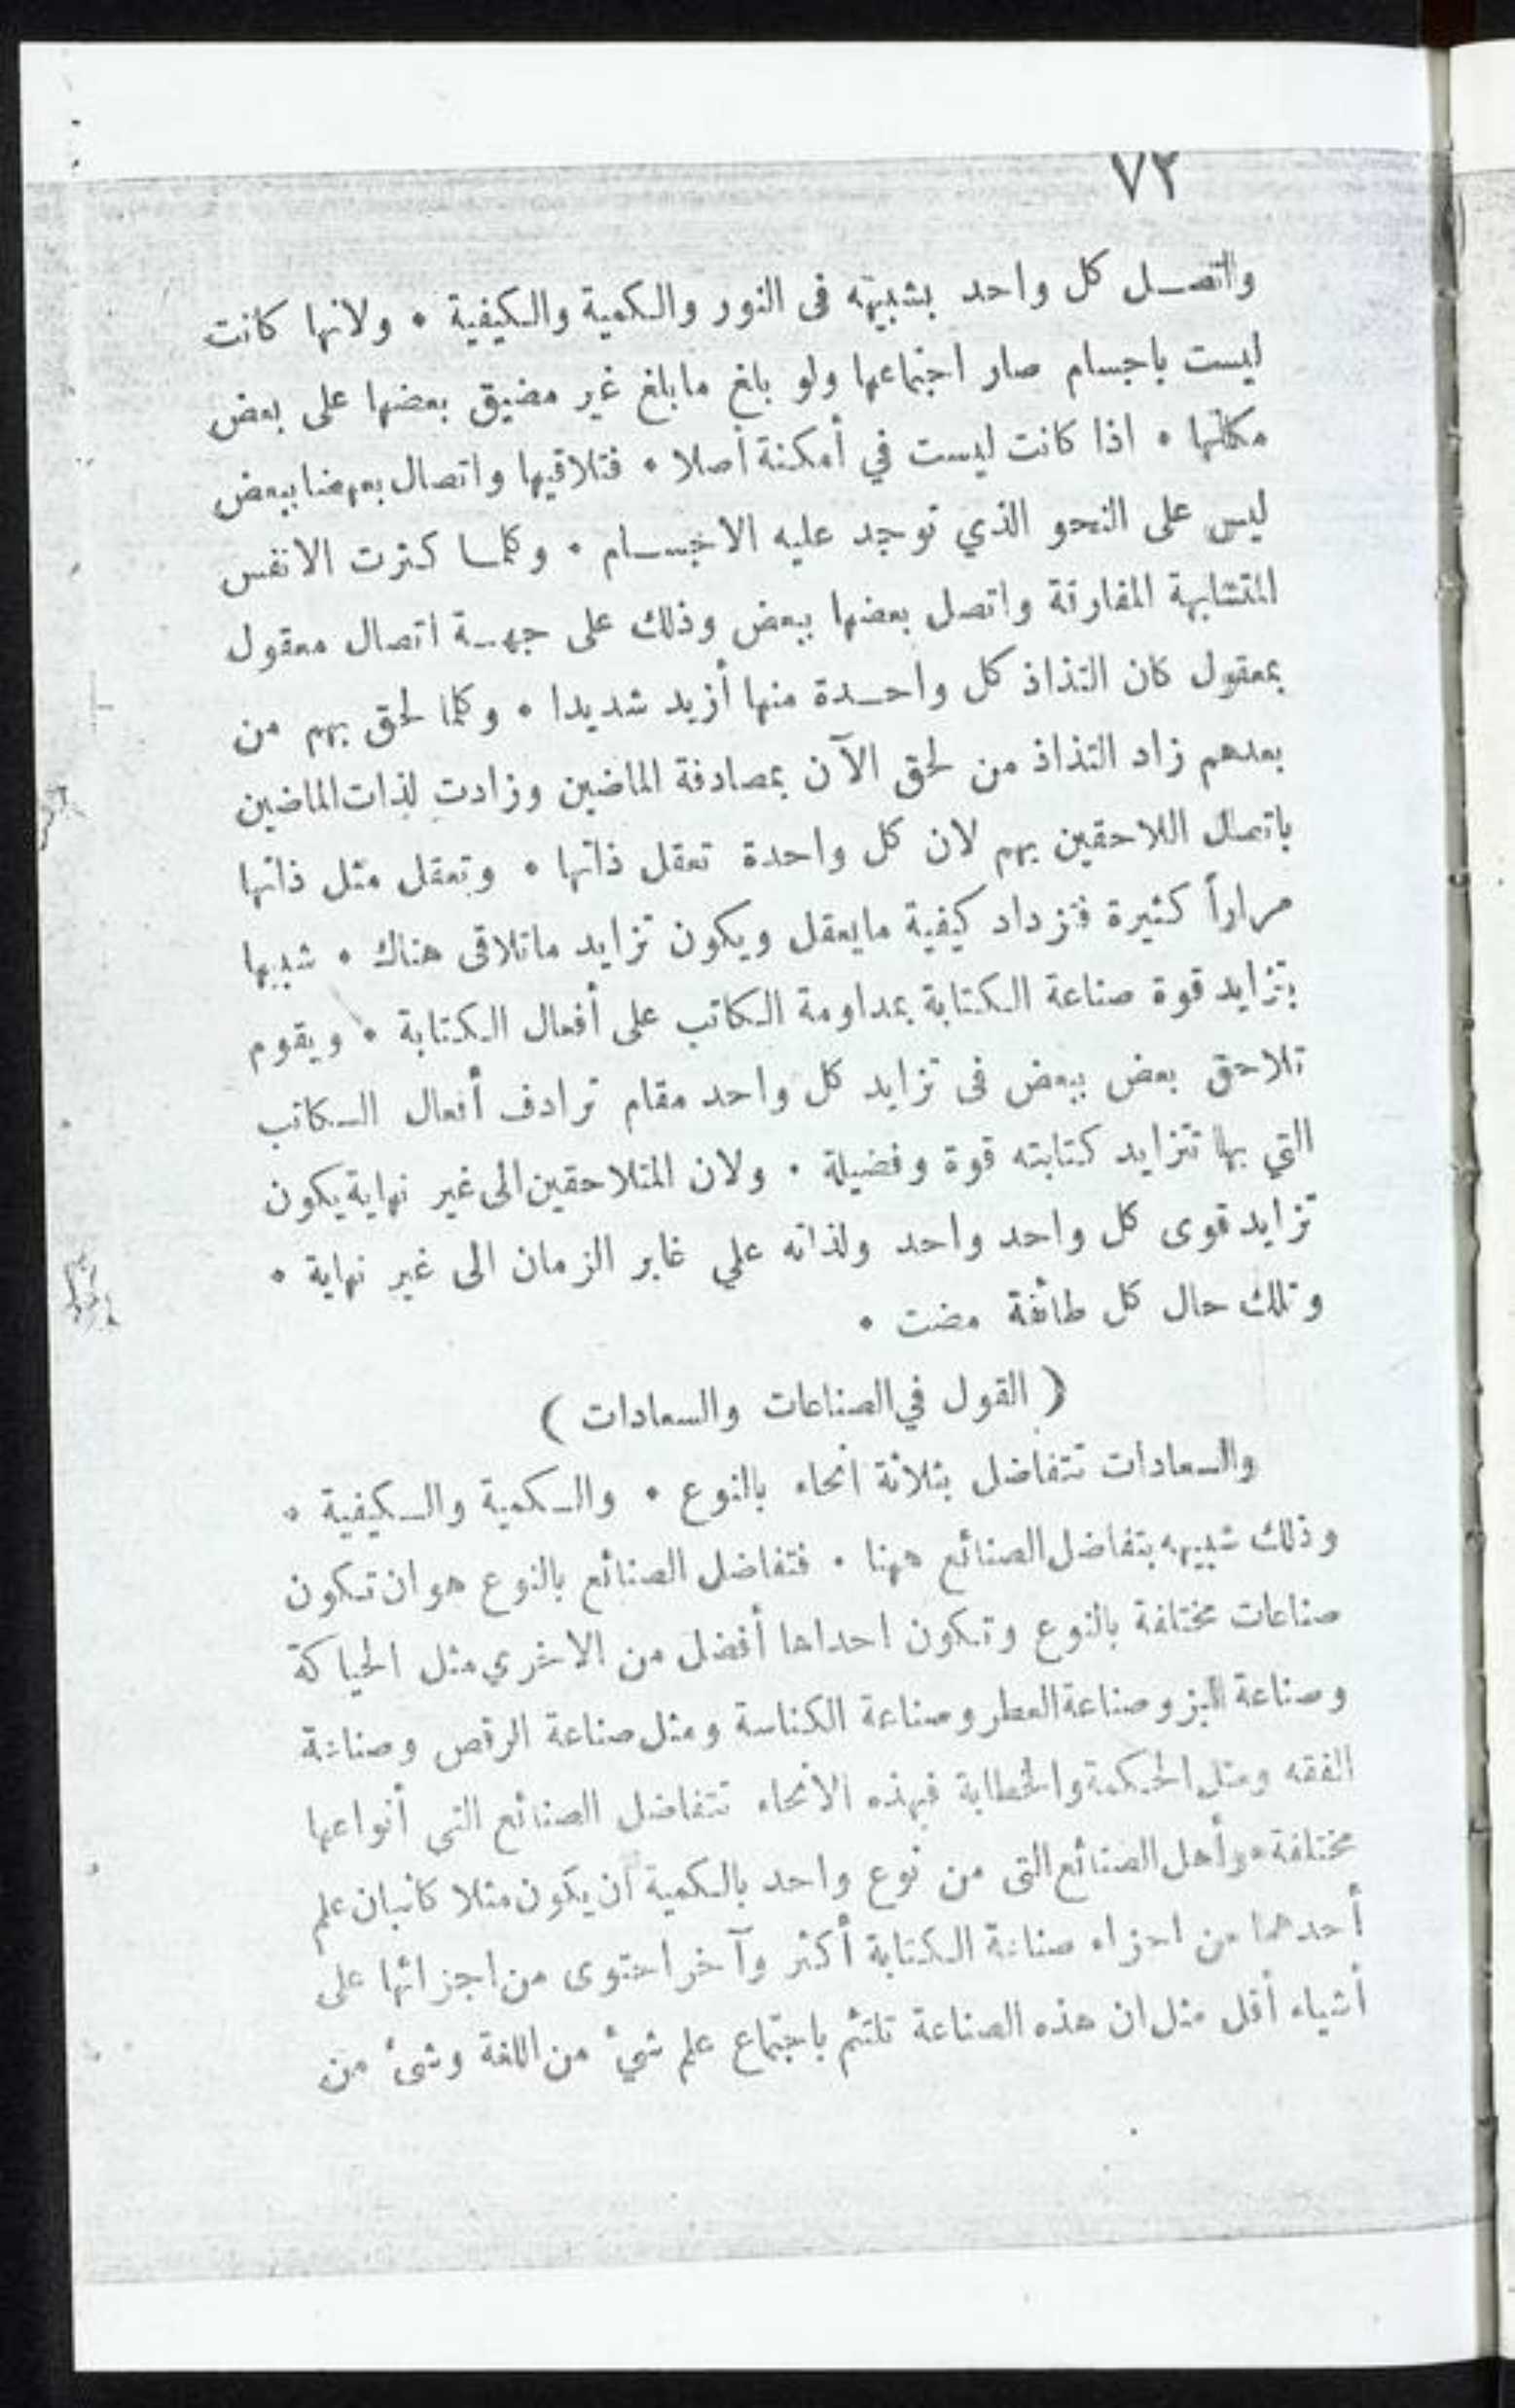 ٧٢
واتصل كل واحد بشبيهه فى النور والكمية والكيفية • ولانها كانت
ليست باجسام صار اجتماعها ولو بلغ مابلغ غير مضيق بعضها على بعض
مكانها • اذا كانت ليست في أمكنة أصلا • فتلاقيها واتصال بعضها ببعض
ليس على النحو الذي توجد عليه الاجسام • وكلما كثرت الانفس
المتشابهة المفارقة واتصل بعضها ببعض وذلك على جهة اتصال معقول
بمعقول كان التذاذ كل واحدة منها أزيد شديدا • وكلما لحق بهم من
بعدهم زاد التذاذ من لحق الآن بمصادفة الماضين وزادت لذات الماضين
باتصال اللاحقين بهم لان كل واحدة تعقل ذاتها • وتعقل مثل ذاتها
مراراً كثيرة فتزداد كيفية مايعقل ويكون تزايد ماتلاقى هناك • شبيها
بتزايد قوة صناعة الكتابة بمداومة الكاتب على أفعال الكتابة • ويقوم
تلاحق بعض ببعض فى تزايد كل واحد مقام ترادف أفعال الكاتب
التي بها تتزايد كتابته قوة وفضيلة • ولان المتلاحقين الى غير نهاية يكون
تزايد قوى كل واحد واحد ولذاته علي غابر الزمان الى غير نهاية •
وتلك حال كل طائفة مضت •
( القول في الصناعات والسعادات )
والسعادات تتفاضل بثلاثة انحاء بالنوع • والكمية والكيفية •
وذلك شبيه بتفاضل الصنائع ههنا • فتفاضل الصنائع بالنوع هو ان تكون
صناعات مختلفة بالنوع وتكون احداها أفضل من الاخري مثل الحياكة
وصناعة البز وصناعة العطر وصناعة الكناسة ومثل صناعة الرقص وصناعة
الفقه ومثل الحكمة والخطابة فبهذه الانحاء تتفاضل الصنائع التى أنواعها
مختلفة • وأهل الصنائع التى من نوع واحد بالكمية ان يكون مثلا كاتبان علم
أحدهما من اجزاء صناعة الكتابة أكثر وآخر احتوى من اجزائها على
أشياء أقل مثل ان هذه الصناعة تلتئم باجتماع علم شيء من اللغة وشىء من